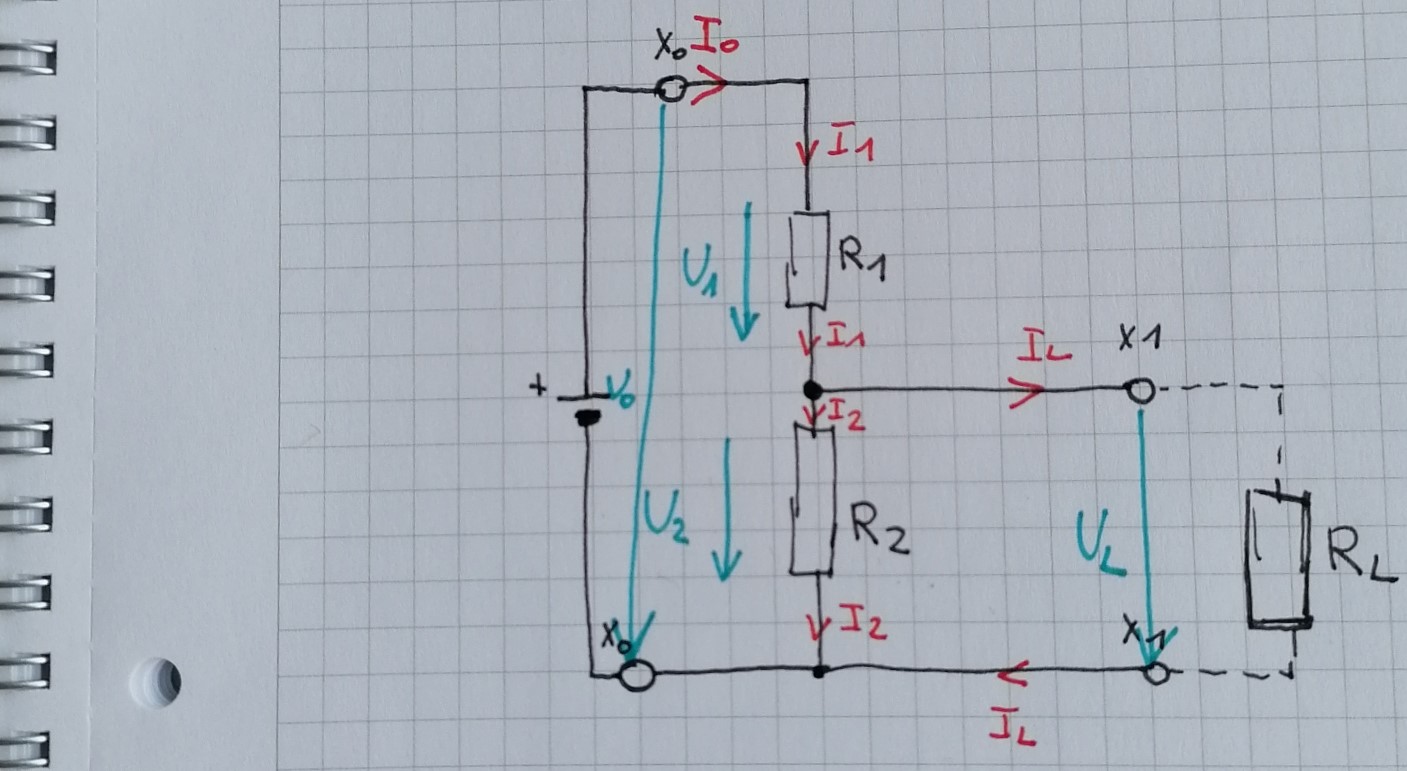 X₀ I₀
I1
U1
R1
I1
IL
X1
+
U₀
I2
U2
R2
UL
RL
X₀
I2
X1
IL